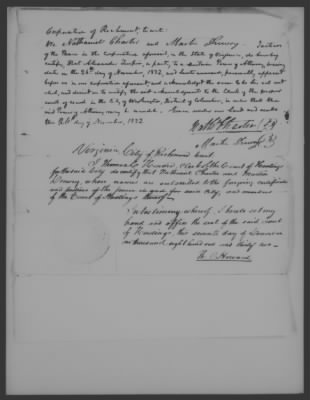 Corporation of Richmond, to wit:
We Nathaniel Charter and Martin Drewry Justices
of the Peace in the Corporation aforesaid, in the State of Virginia, do hereby
certify, that Alexander a party, to a certain Power of Attorney bearing
date on the 26th day of November, 1832, and hereto annexed, personally appeared
before us in our corporation aforesaid and acknowledged the same to be his act and
deed, and desired us to certify the said acknowledgment to the Clerk of the
court of in the City of Washington, District of Columbia, in order that the
said Power of Attorney may be recorded. Given under our hands and seals
this day of November, 1832
Nathl Charter
Martin Drewry
Virginia
City of Richmond to wit
I Thomas C Howard, Clerk of the Court of Hustings
for the said City do certify that Nathaniel Charter and Martin
Drewry, whose names are subscribed to the foregoing certificate
are justices of the peace in and for said City, and members
of the Court of Hustings thereof.
In testimony whereof, I hereto set my
hand and affix the seal of the said Court
of Hustings, this seventh day of December
eighteen hundred and thirty two
Th. C. Howard